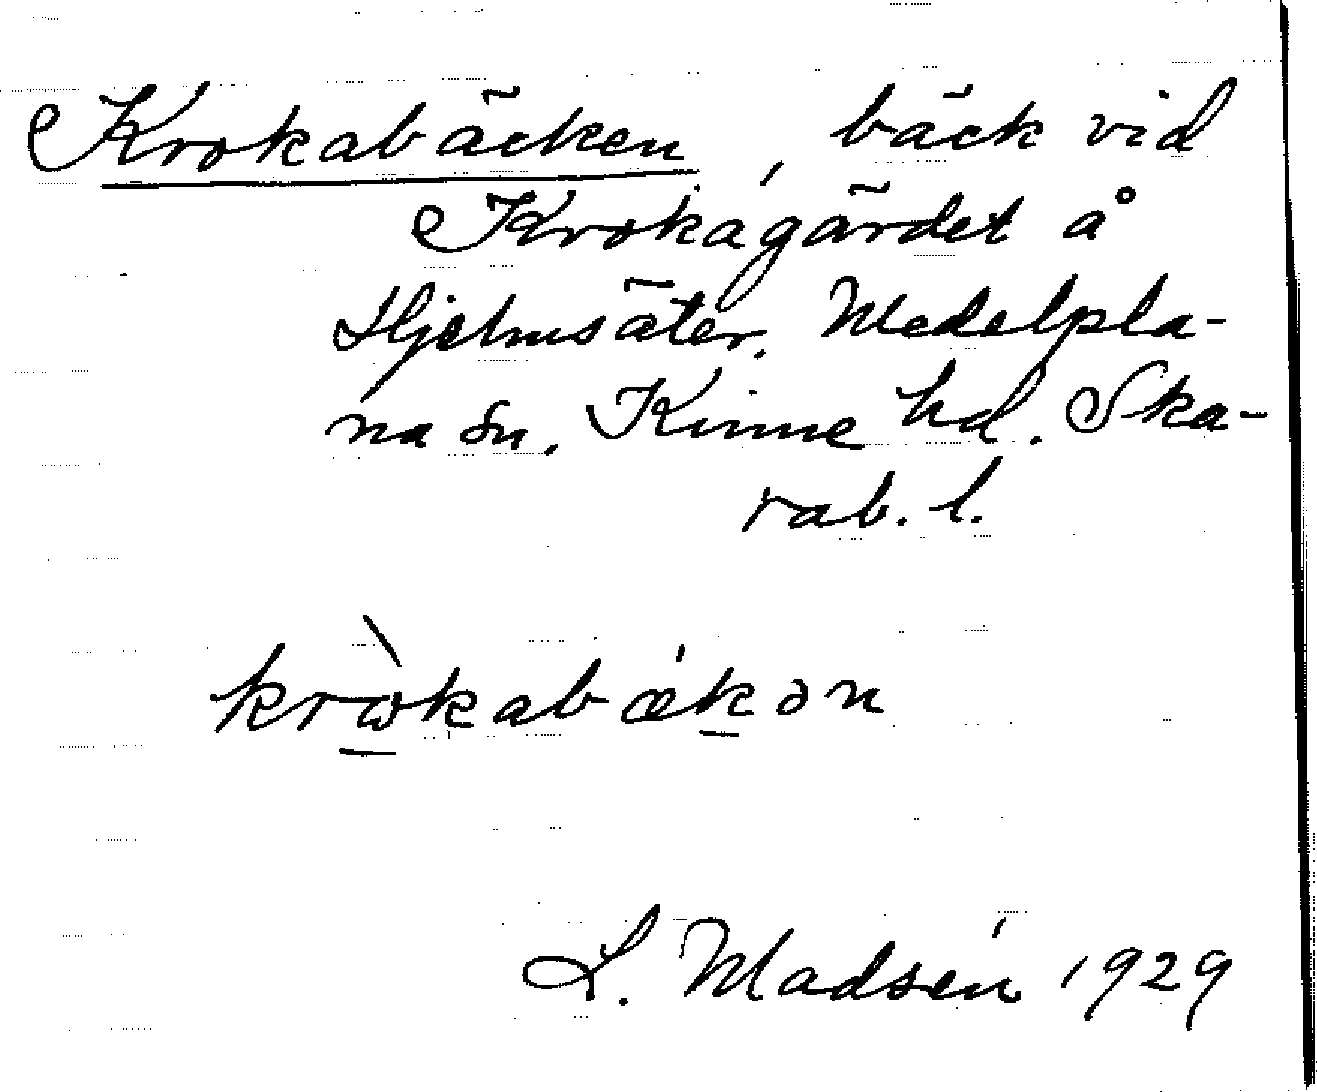 Krokabäcken, bäck vid
Krokagärdet å
Hjelmsäter, Medelpla-
na sn, Kinne hd. Ska-
rab. l.
kròkabǽkən
L. Madsén 1929